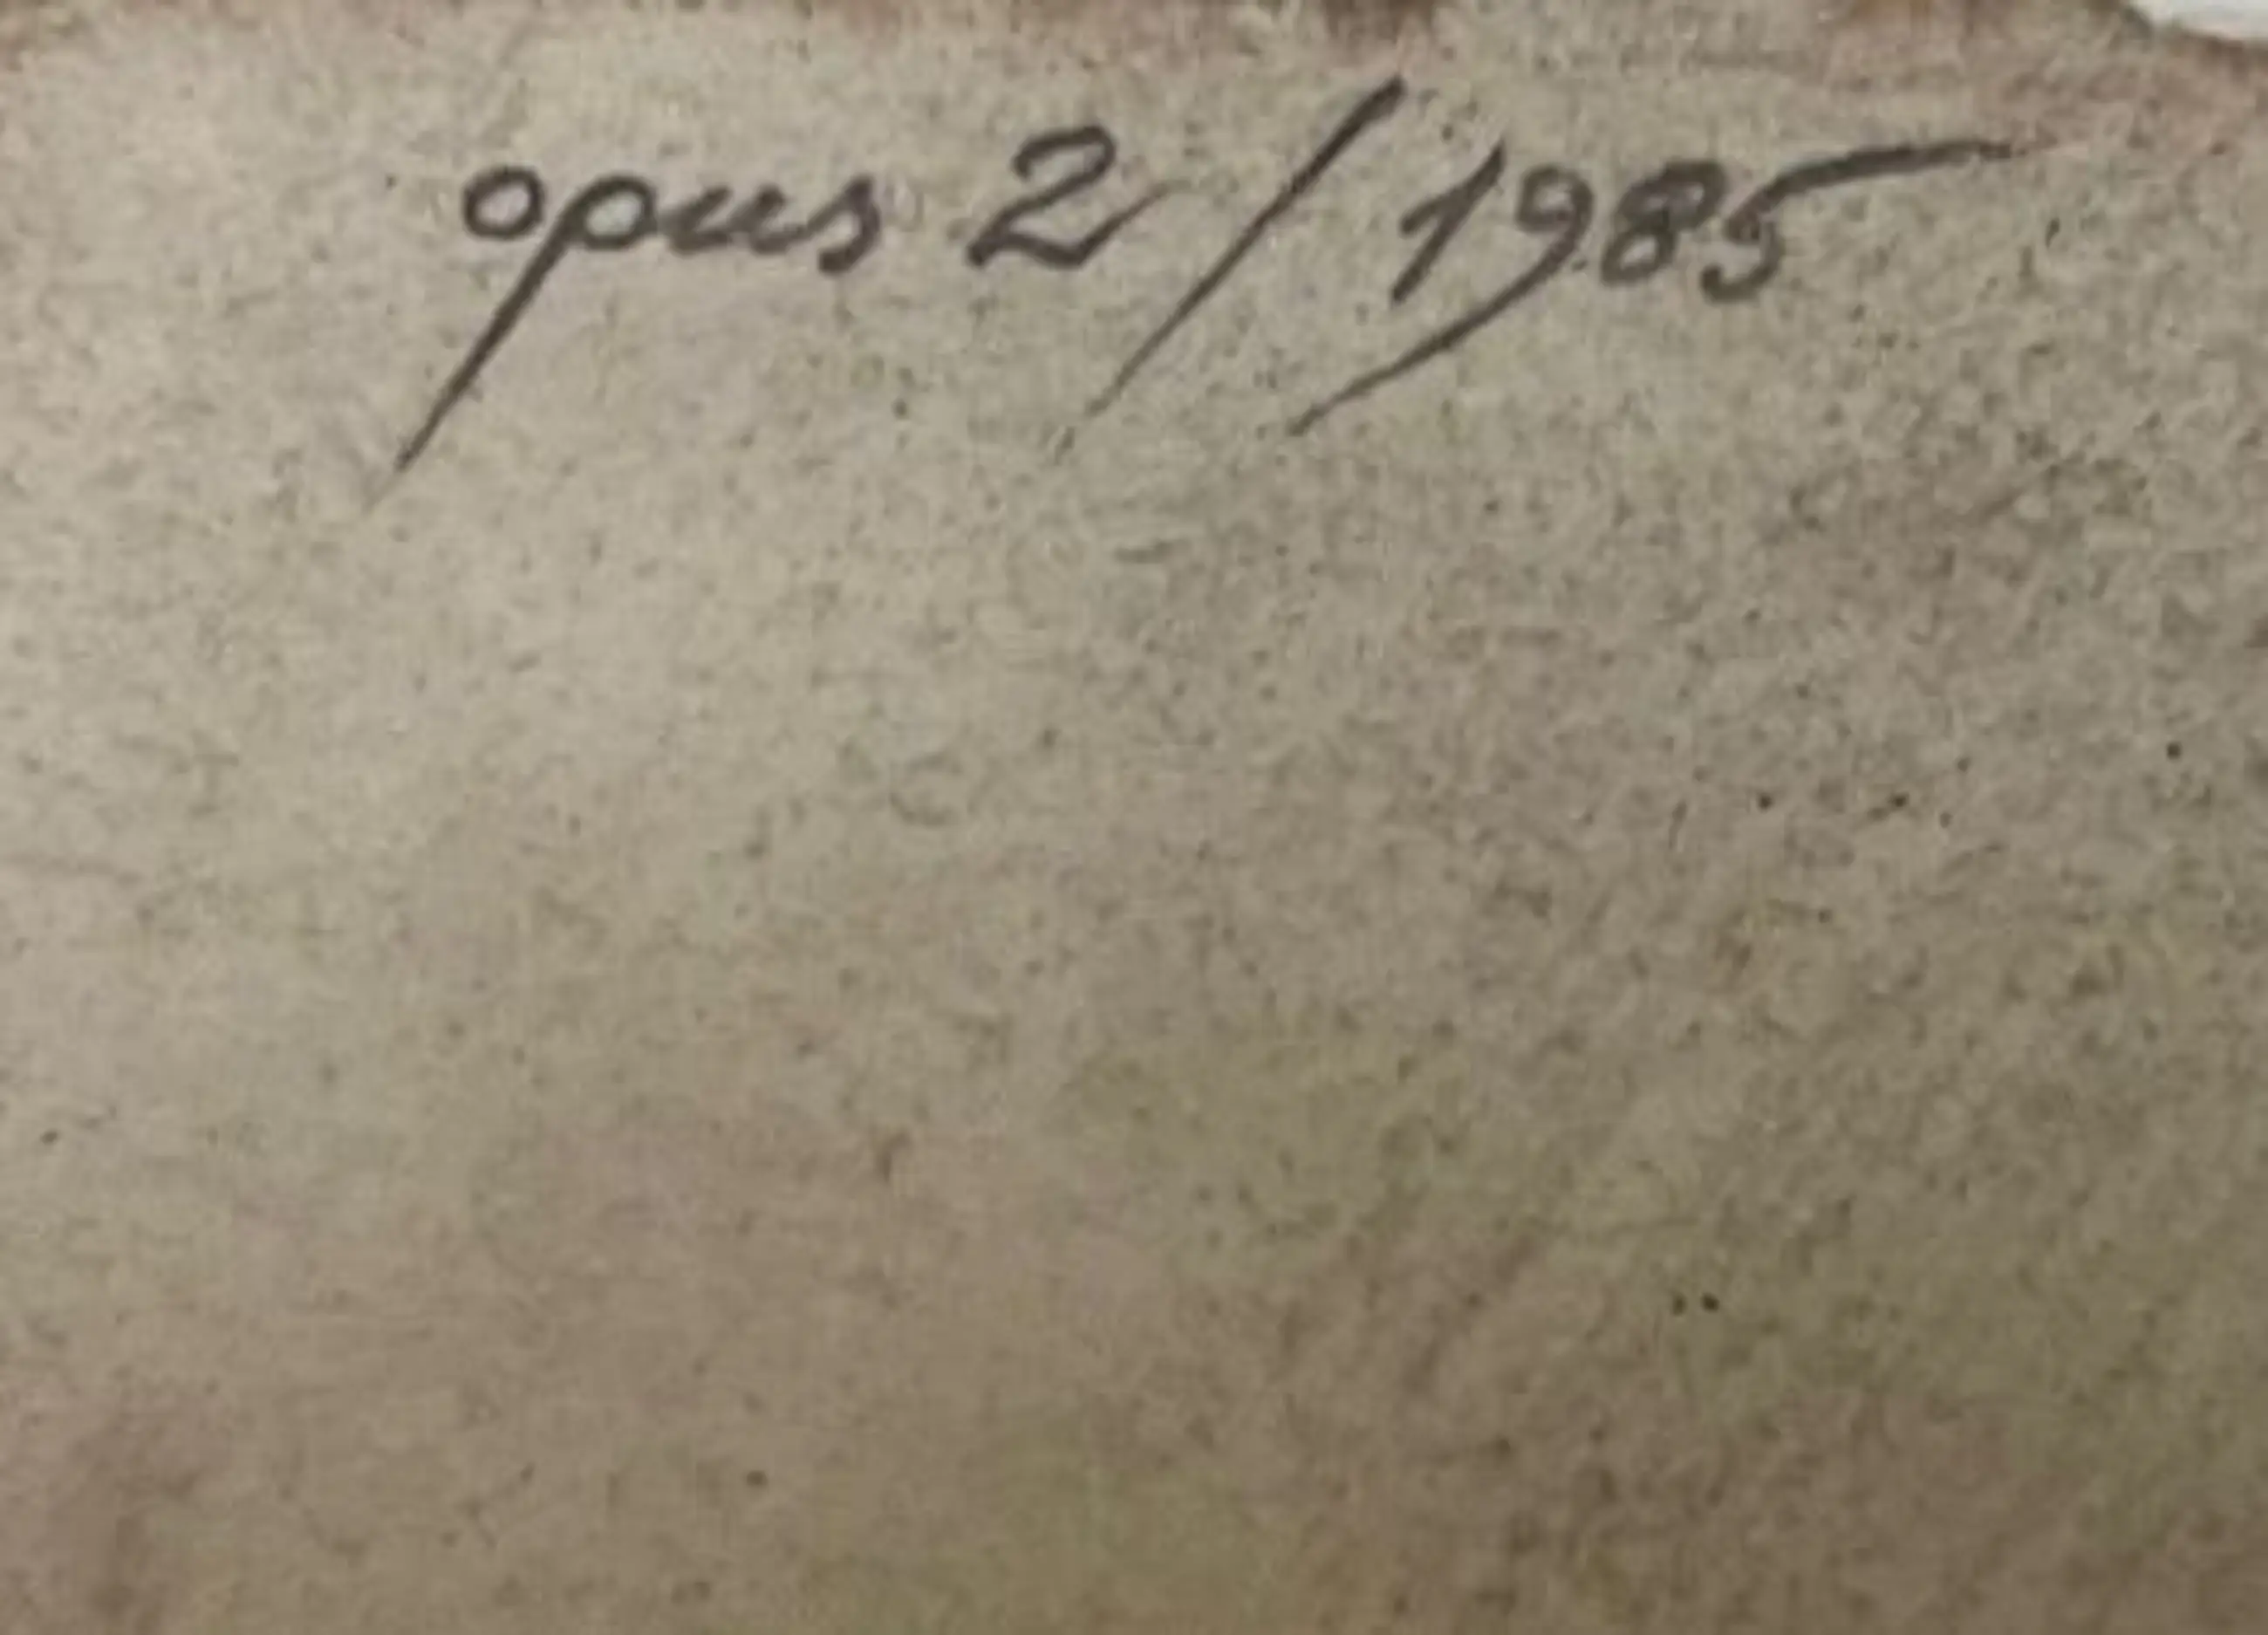 opus 2 / 1985